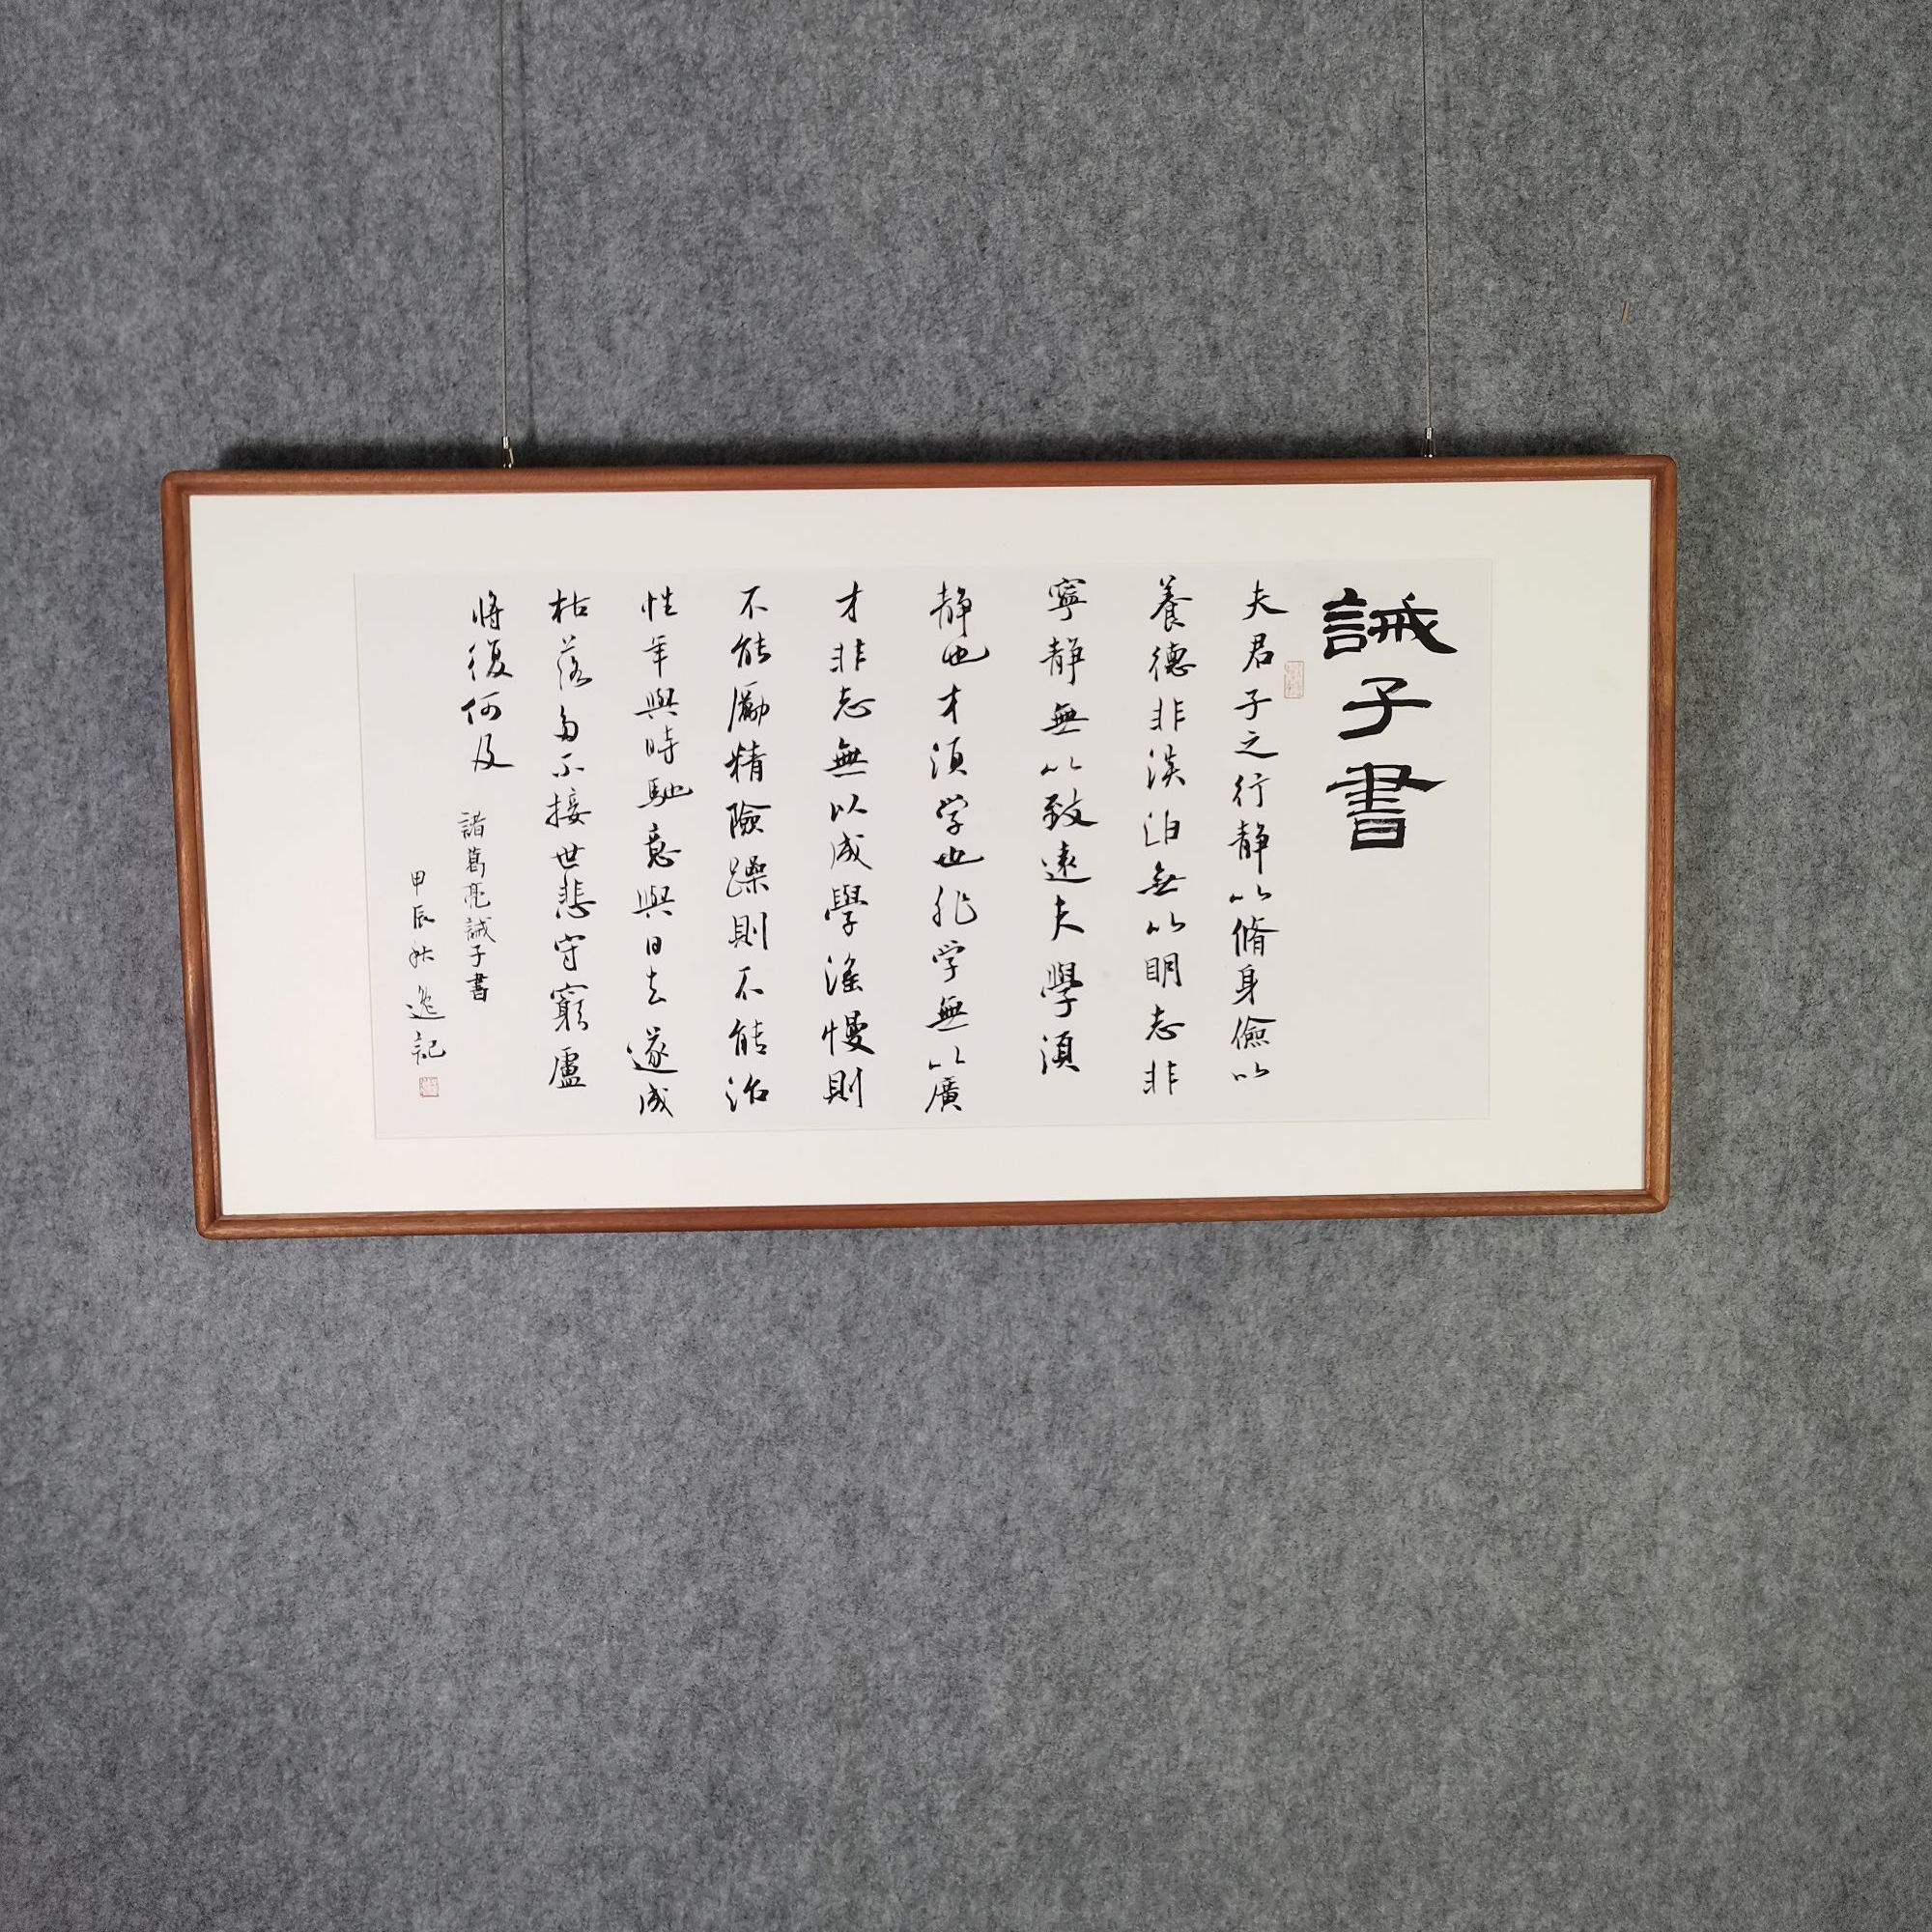 誡子書
夫君子之行静以脩身儉以
養德非淡泊無以明志非
寧静無以致遠夫學須
静也才須学也非学無以廣
才非志無以成學滛慢則
不能勵精險躁則不能治
性年與時馳意與日去遂成
枯落多不接世悲守窮廬
將復何及
諸葛亮誡子書
甲辰秋逸記